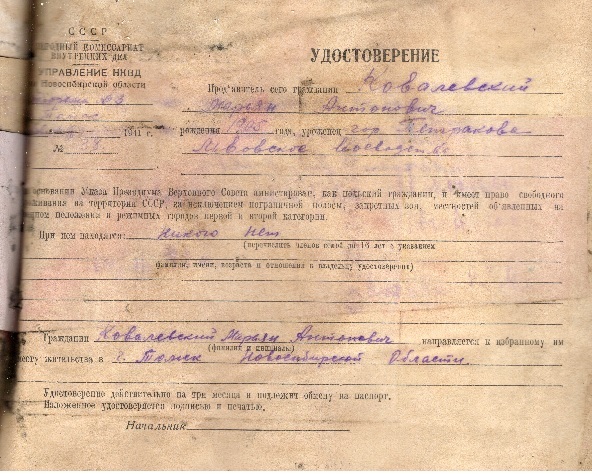 СССР
НАРОДНЫЙ КОМИССАРИАТ
ВНУТРЕННИХ ДЕЛ
УПРАВЛЕНИЕ НКВД
по Новосибирской области
1941 г.
№
УДОСТОВЕРЕНИЕ
Пред'явитель сего гражданин Ковалевский
Марьян Антонович
рождения 1905 года, уроженец гор Петракова
Львовское Воеводство
основании Указа Президиума Верховного Совета амнистирован, как польский гражданин, и имеет право свободного
проживания на территории СССР, за исключением пограничной полосы, запретных зон, местностей об'явленных на
военном положении и режимных городов первой и второй категории.
При нем находятся: Никого нет
(перечислить членов семьи до 16 лет с указанием
фамилии, имени, возраста и отношения к владельцу удостоверения)
Гражданин Ковалевский Марьян Антонович направляется к избранному им
(фамилия и инициалы)
месту жительства в г. Томск Новосибирской Области.
Удостоверение действительно на три месяца и подлежит обмену на паспорт.
Изложенное удостоверяется подписью и печатью.
Начальник